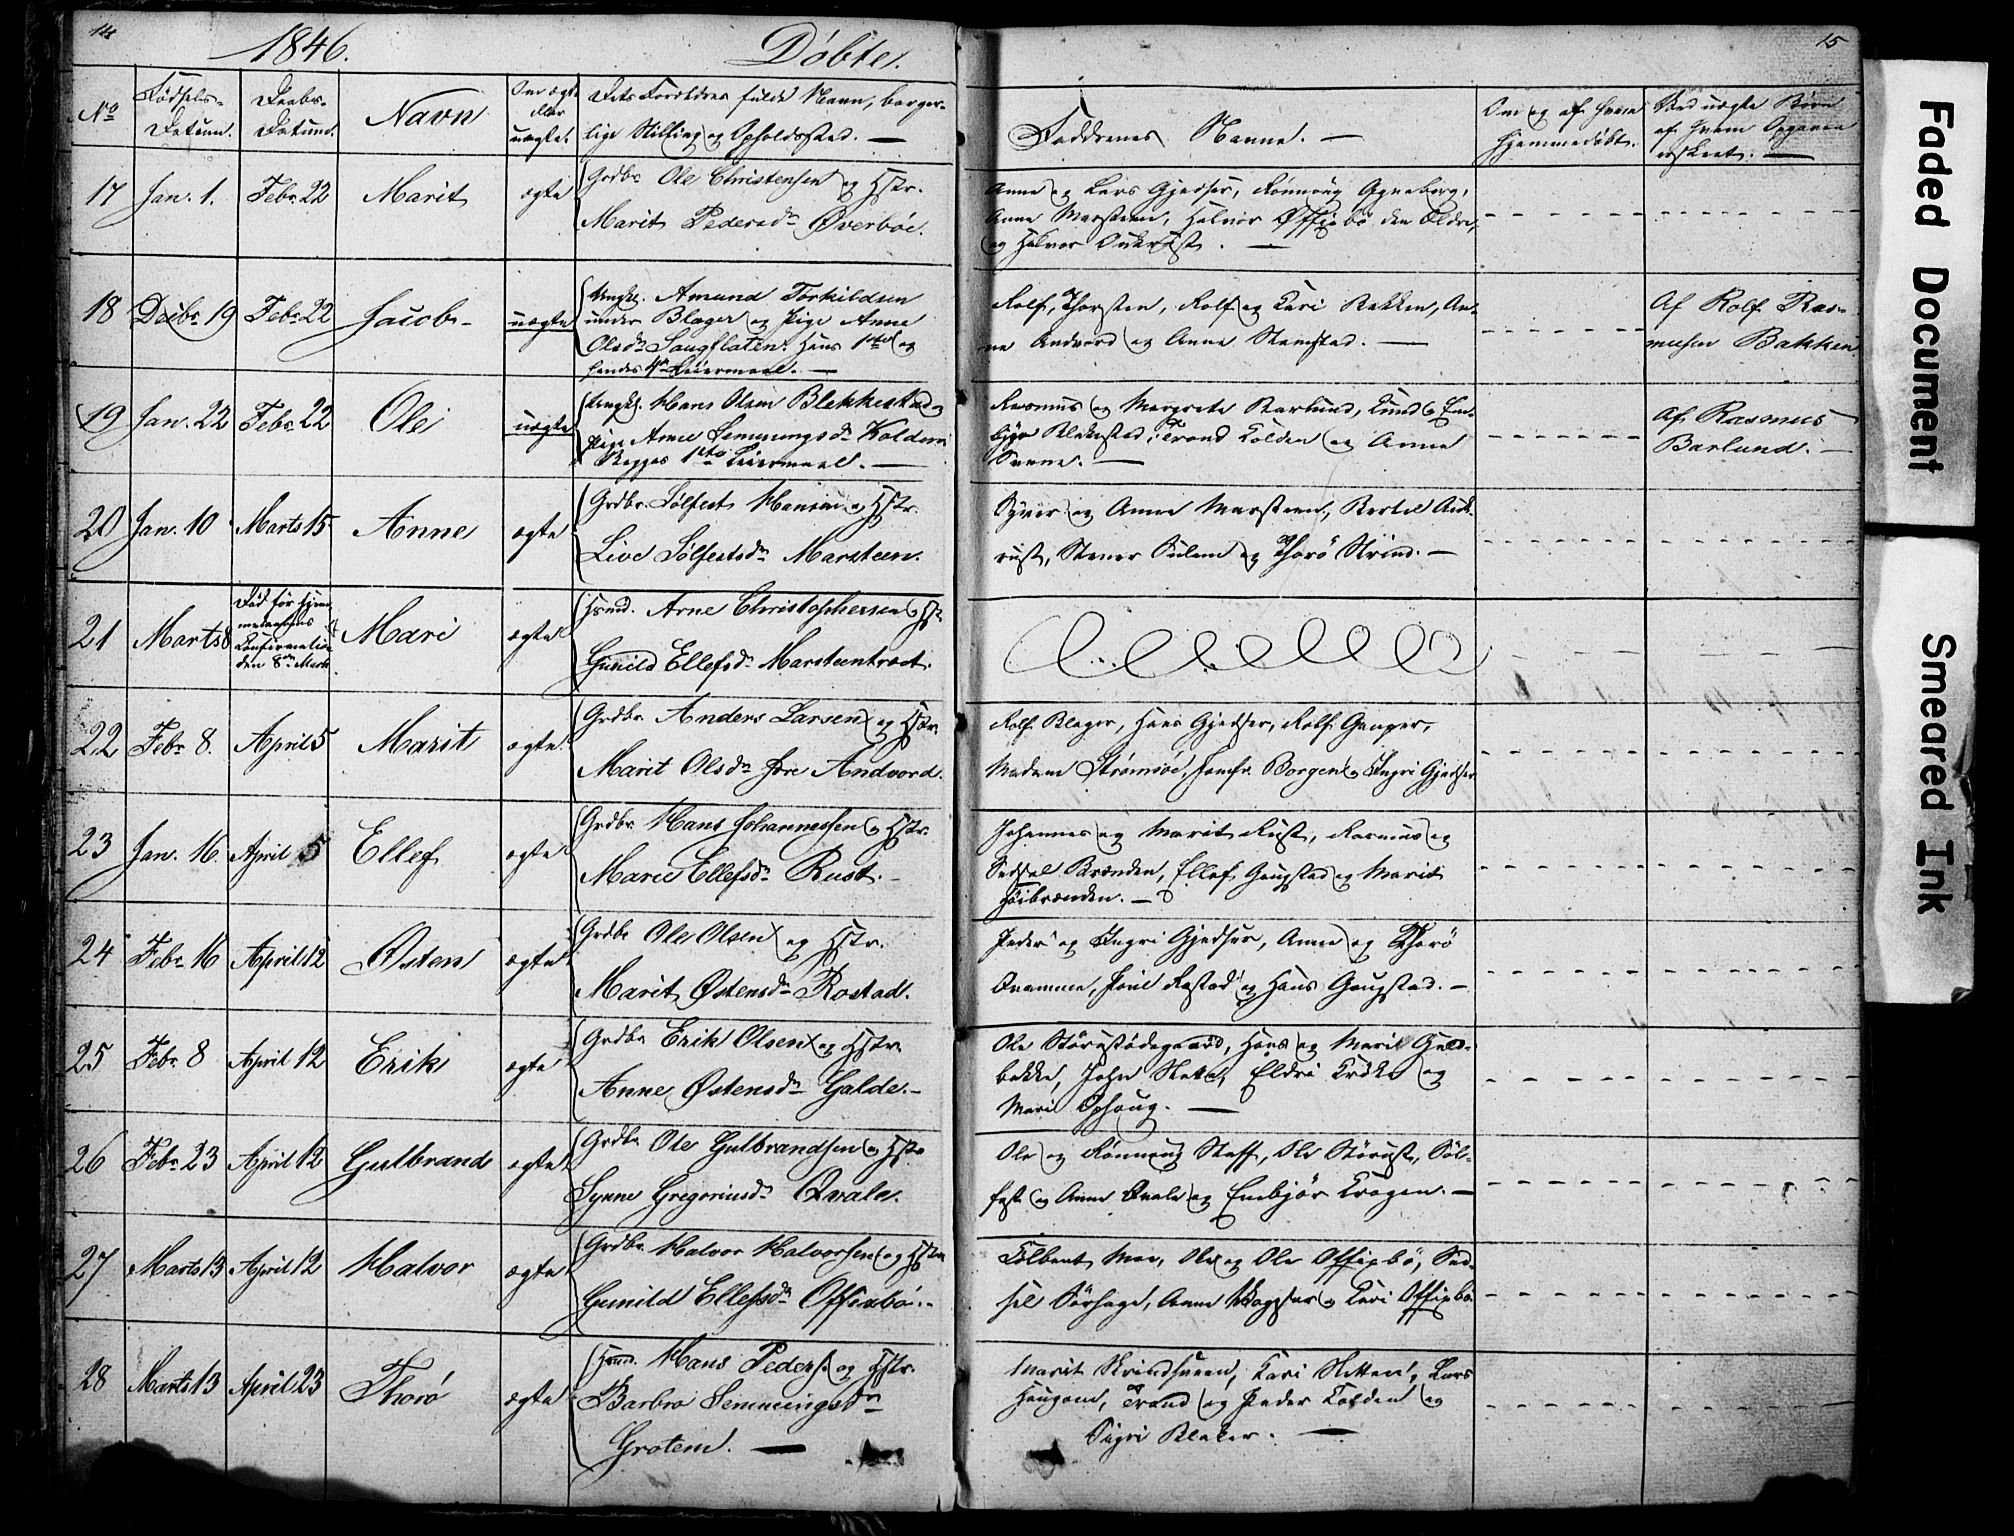 14
1846.
Døbte.
15
No
Fødsels-
Datum.
Daabs-
Datum.
Navn
Om ægte
eller
uægte.
Dets Forældres fulde Navn, borger-
lige Stilling og Opholdssted. —
Faddrenes Navne. —
Om og af hvem
hjemmedøbt.
Ved uægte Børn
af hvem Opgaven
er skeet. —
17 Jan. 1. Febr. 22 Marit ægte
Grdbr. Ole Christensen og Hstr.
Marit Pedersdr. Øverbøe.
Anne og Lars Gjedser,
Anne Marsteen, Halvor Offigsbø den Ældre,
og Halvor
18 Decbr. 19 Febr. 22 Jacob uægte
Ungkl. Amund Torkildsen
under Blager og Pige Anne
Olsdr. Saugflaten. Hans 1ste og
hendes 4de Leiermaal. —
Rolf, Thorsten, Rolf og Kari Bakken, An-
ne Andvord og Anne Stamstad. —
Af Rolf Ras-
musen Bakken
19 Jan. 22 Febr. 22 Ole uægte
Ungkl. Hans Olsen Blekkestad og
Pige Anne Semmingsdr. Kolden
Begges 1ste Leiermaal. —
Rasmus og Margrete Barlund, Knud og Em-
bjør Blekestad, Trond Kolden og Anne
Sveen. —
Af Rasmus
Barlund. —
20 Jan. 10 Marts 15 Anne ægte
Grdbr. Sølfest Hansen og Hstr.
Live Sølfestsdr. Marsteen.
Syver og Anne Marsteen, Bertel Auk-
rust, Stener Sulem og Thorø Skrind. —
21 Marts 8 Død før Hjem-
medaabens
Confirmation
den 8de Marts
Mari ægte
Hsmd. Arne Christophersen og Hstr.
Gunild Ellefsdr. Marsteentræet.
22 Febr. 8. April 5 Marit ægte
Grdbr. Anders Larsen og Hstr.
Marit Olsdr. Andvord.
Rolf Blager, Hans Gjedser, Rolf Gauper,
Madame Strømsøe, Jomfr. Borgen og Ingri Gjedser
23 Jan. 16. April 5 Ellef ægte
Grdbr. Hans Johannessen og Hstr.
Marie Ellefsdr. Rust. —
Johannes og Marit Rust, Rasmus og
Sedsel Brænden, Ellef Gaugstad og Marit
Høibrænden. —
24 Febr. 16 April 12 Østen ægte
Grdbr. Ole Olsen og Hstr.
Marit Østensdr. Rostad.
Peder og Ingri Gjedser, Anne og Thorø
Kvamme, Poul Rostad og Hans Gaugstad. —
25 Febr. 8 April 12 Erik ægte
Grdbr. Erik Olsen og Hstr.
Anne Østensdr. Galde. —
Ole Størustødegaard, Hans og Marit Guld-
bekke, John Slette, Eldri Krøke og
Mari Ophoug. —
26 Febr. 23 April 12 Gulbrand ægte
Grdbr. Ole Gulbrandsen og Hstr.
Synne Gregoriusdr. Qvale.
Ole og Rønnoug Staff, Ole Størust, Søl-
fest og Anne Qvale og Embjør Krogen. —
27 Marts 13 April 12 Halvor ægte
Grdbr. Halvor Halvorsen og Hstr.
Gunild Ellefsdr. Offixbø. —
Tolbent Moe, Ole og Ole Offixbø, Sed-
sel Sørhage, Anne og Kari Offixbø.
28 Marts 13 April 23 Thorø ægte
Hsmd. Hans Peders. og Hstr.
Barbro Semmingsdr.
Grotem. —
Marit Skrindsveen, Kari Sletten, Lars
Haugom, Trond og Peder Kolden og
Sigri Bleker. —
Faded Document
Smeared Ink